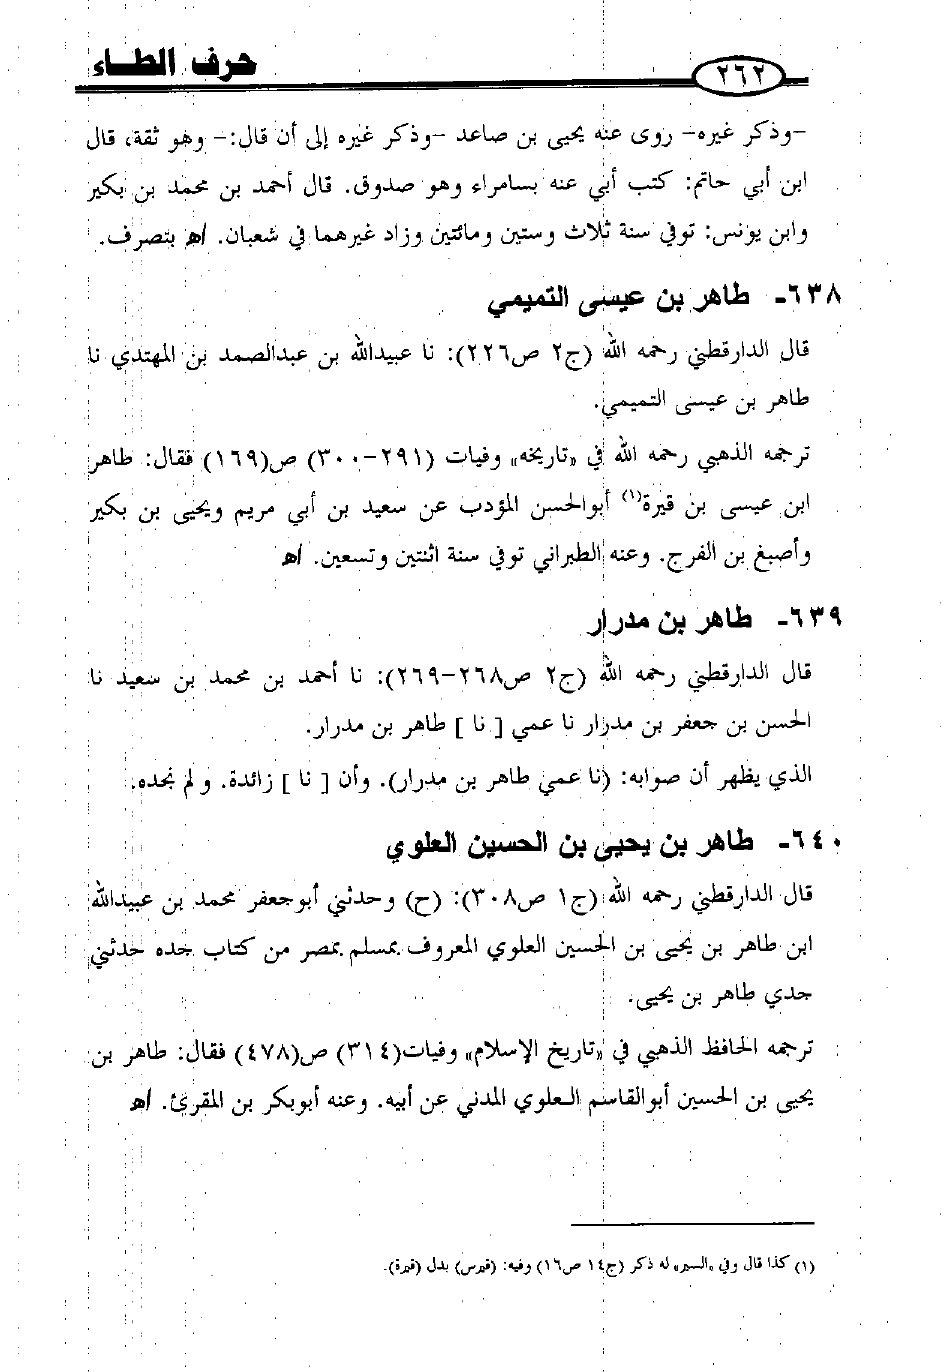 حرف الطاء
٢٦٢
-وذكر غيره- روى عنه يحيى بن صاعد -وذكر غيره إلى أن قال:- وهو ثقة، قال
ابن أبي حاتم: كتب أبي عنه بسامراء وهو صدوق. قال أحمد بن محمد بن بكير
وابن يونس: توفي سنة ثلاث وستين ومائتين وزاد غيرهما في شعبان. اﻫ بتصرف.
٦٣٨- طاهر بن عيسى التميمي
قال الدارقطني رحمه الله (ج٢ ص٢٢٦): نا عبيدالله بن عبدالصمد بن المهتدي نا
طاهر بن عيسى التميمي.
ترجمه الذهبي رحمه الله في «تاريخه» وفيات (٢٩١-٣٠٠) ص(١٦٩) فقال: طاهر
ابن عيسى بن قيرة(١) أبوالحسن المؤدب عن سعيد بن أبي مريم ويحيى بن بكير
وأصبغ بن الفرج. وعنه الطبراني توفي سنة اثنتين وتسعين. اﻫ
٦٣٩- طاهر بن مدرار
قال الدارقطني رحمه الله (ج٢ ص٢٦٨-٢٦٩): نا أحمد بن محمد بن سعيد نا
الحسن بن جعفر بن مدرار نا عمي [ نا ] طاهر بن مدرار.
الذي يظهر أن صوابه: (نا عمي طاهر بن مدرار). وأن [ نا ] زائدة. و لم نجده.
٦٤٠- طاهر بن يحيى بن الحسين العلوي
قال الدارقطني رحمه الله (ج١ ص٣٠٨): (ح) وحدثني أبوجعفر محمد بن عبيدالله
ابن طاهر بن يحيى بن الحسين العلوي المعروف بمسلم بمصر من كتاب جده حدثني
جدي طاهر بن يحيى.
ترجمه الحافظ الذهبي في «تاريخ الإسلام» وفيات(٣١٤) ص(٤٧٨) فقال: طاهر بن
يحيى بن الحسين أبوالقاسم العلوي المدني عن أبيه. وعنه أبوبكر بن المقرئ. اﻫ
(١) كذا قال وفي «السير» له ذكر (ج١٤ ص١٦) وفيه: (قيرس) بدل (قيرة).